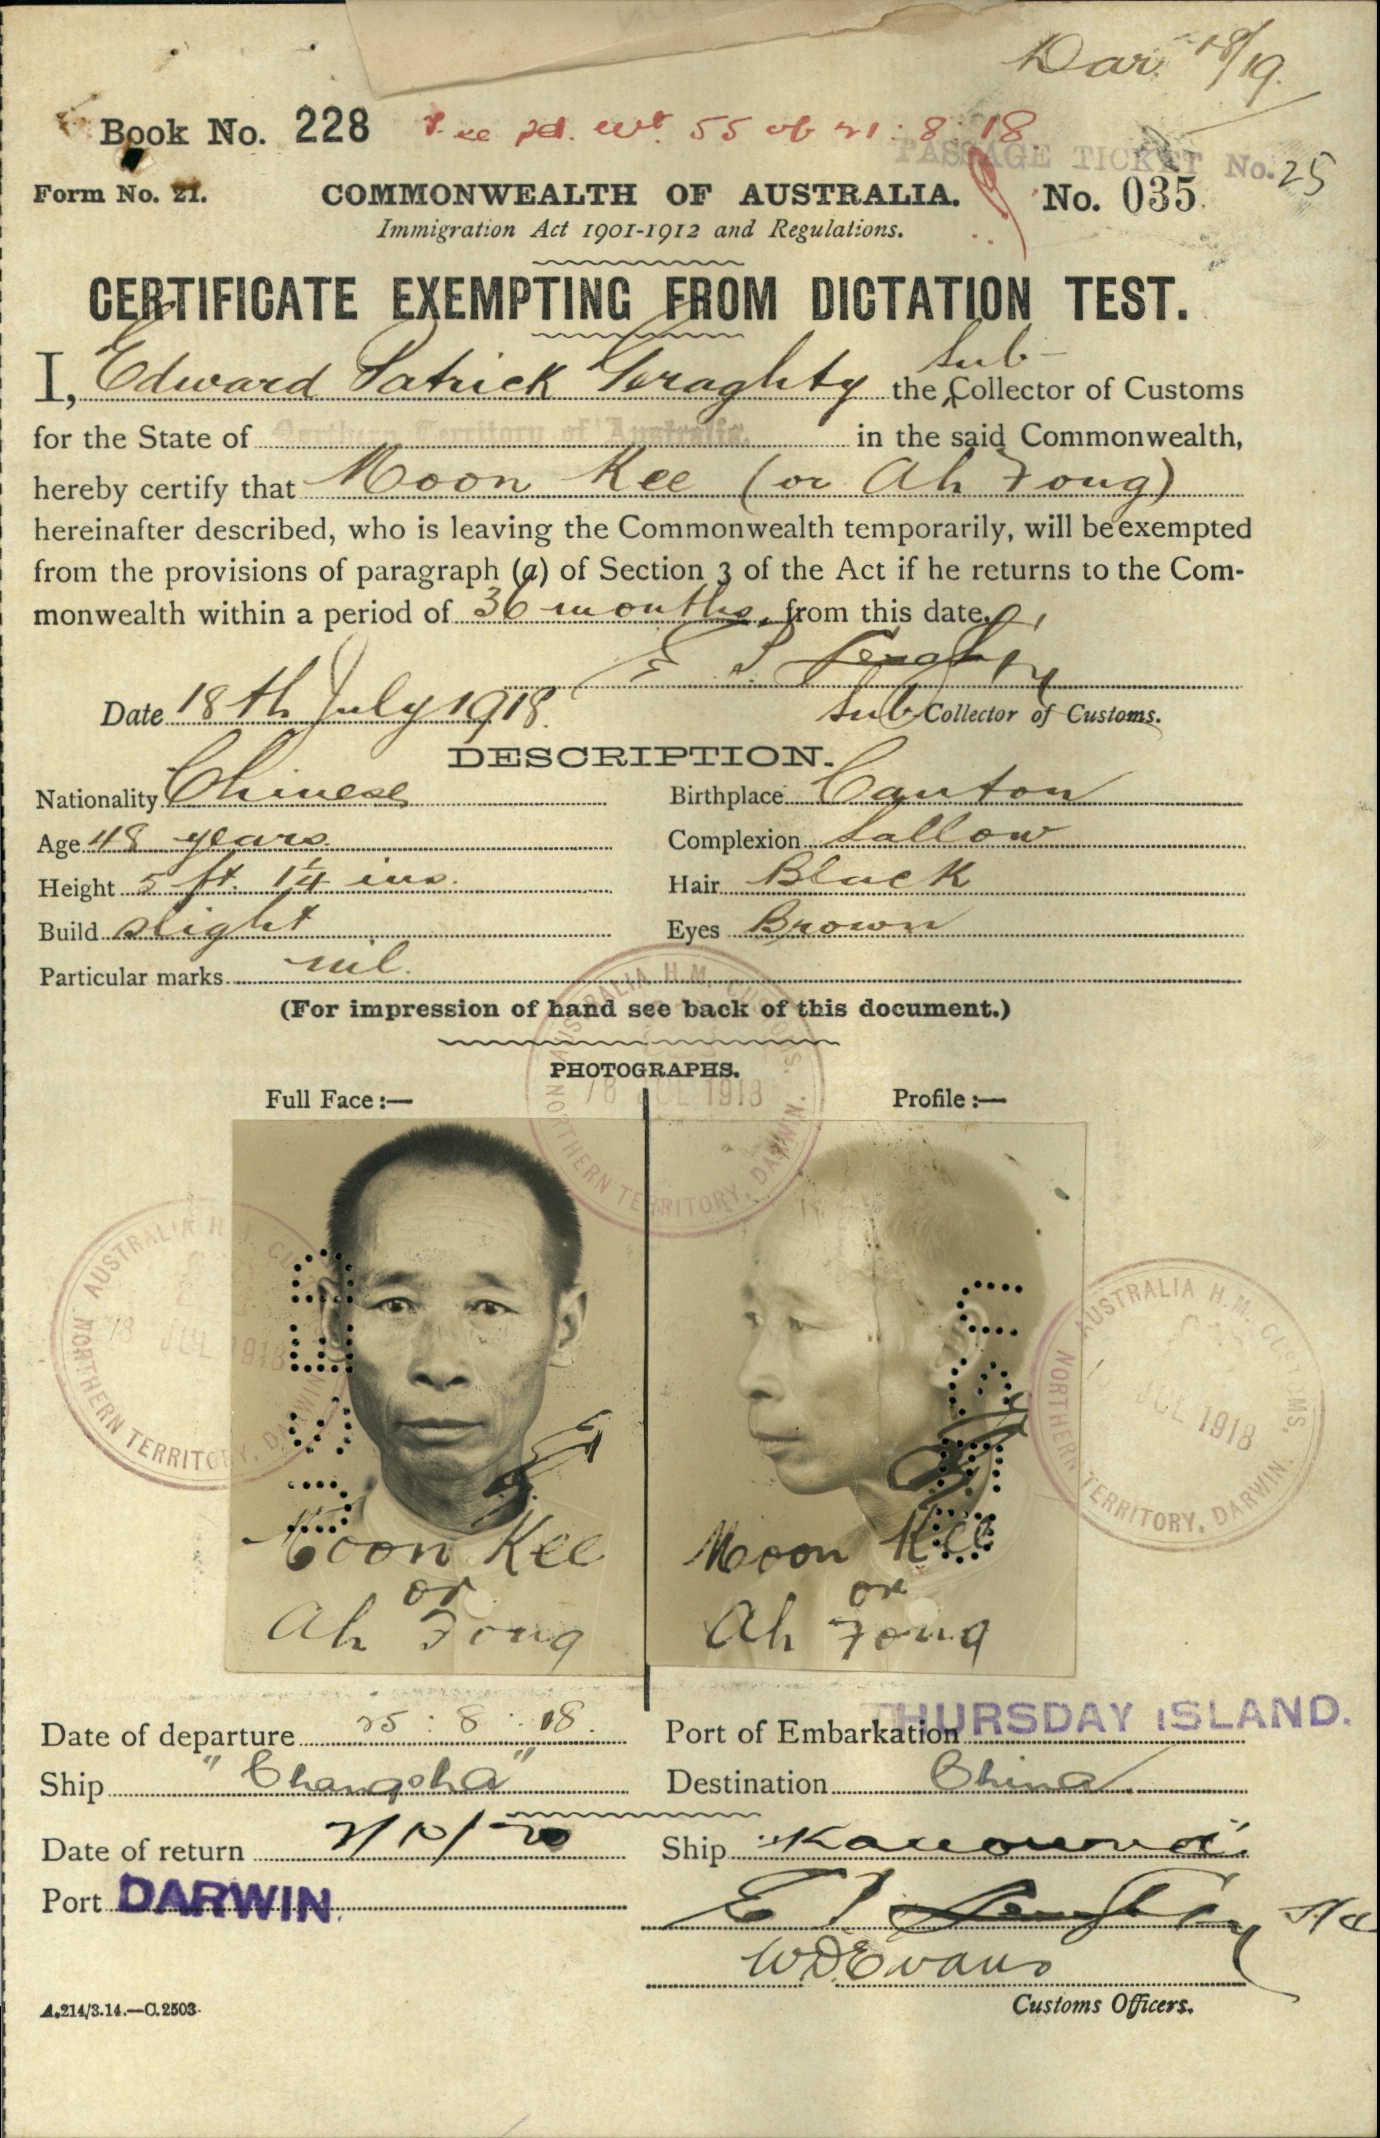 Dar. 18/19.
Book No. 228
pd.
55 of 21:8:18
PASSAGE TICKET No. 25
Form No. 21.
COMMONWEALTH OF AUSTRALIA.
No. 035
Immigration Act 1901-1912 and Regulations.
CERTIFICATE EXEMPTING FROM DICTATION TEST.
Sub-
I, Edward Patrick Geraghty the Collector of Customs
for the State of Northern Territory of Australia. in the said Commonwealth,
hereby certify that Moon Kee (or Ah Fong)
hereinafter described, who is leaving the Commonwealth temporarily, will be exempted
from the provisions of paragraph (a) of Section 3 of the Act if he returns to the Com-
monwealth within a period of 36 months, from this date.
E P Geraghty
Date 18th July 1918.
Sub Collector of Customs.
DESCRIPTION.
Nationality Chinese
Birthplace Canton
Age 48 years.
Complexion Sallow
Height 5 ft. 1 1/4 ins.
Hair Black
Build slight
Eyes Brown
Particular marks nil.
(For impression of hand see back of this document.)
PHOTOGRAPHS.
Full Face:—
Profile:—
AUSTRALIA H.M. CUSTOMS.
18 JUL 1918
NORTHERN TERRITORY, DARWIN.
AUSTRALIA H.M. CUSTOMS.
18 JUL 1918
NORTHERN TERRITORY, DARWIN.
AUSTRALIA H.M. CUSTOMS.
JUL 1918
NORTHERN TERRITORY, DARWIN.
Moon Kee
or
Ah Fong
Moon Kee
or
Ah Fong
Date of departure 25:8:18.
Port of Embarkation THURSDAY ISLAND.
Ship "Changsha"
Destination China.
Date of return 2/10/20
Ship "Kanowna".
Port DARWIN.
E P Geraghty
W D Evans
Customs Officers.
A.214/3.14.—C.2503.